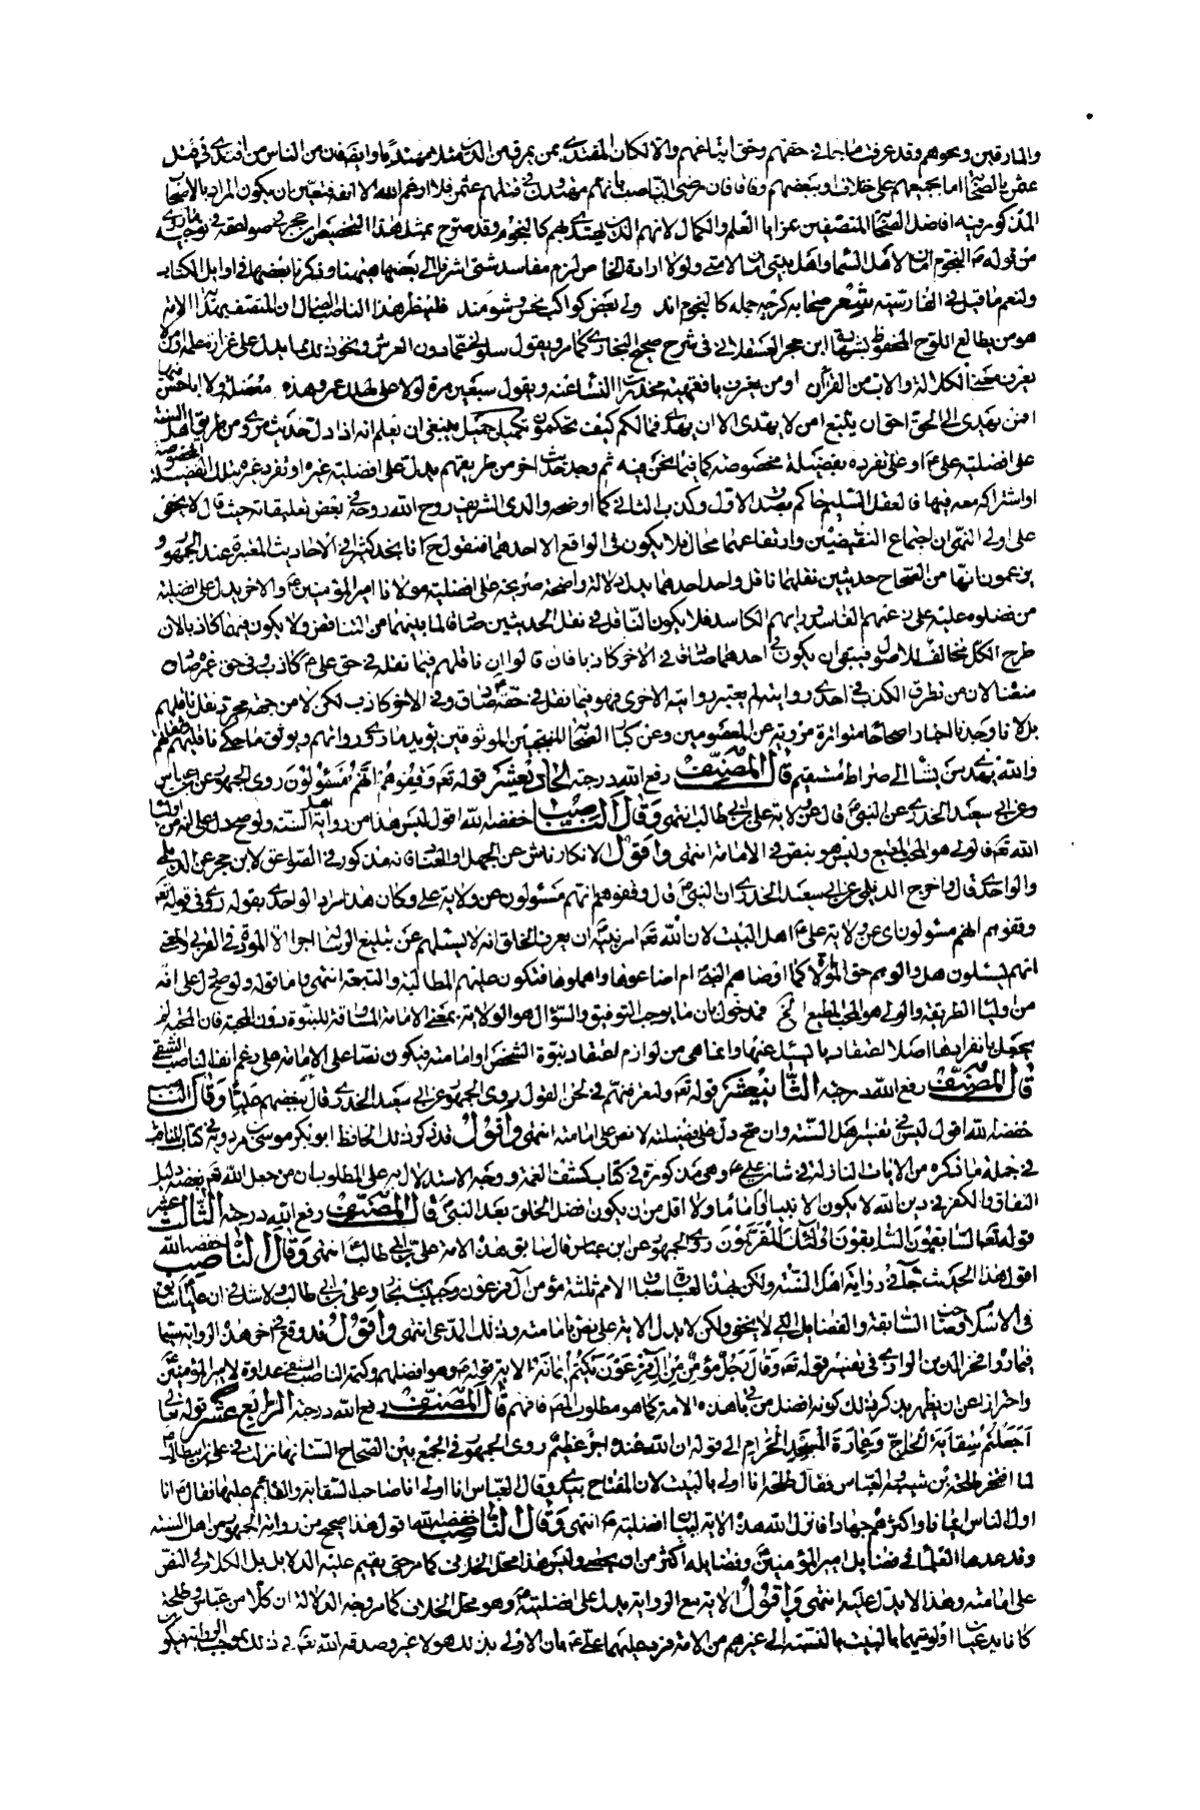 والمارقين ونحوهم وقد عرفت ما جاء في حقهم وحق اتباعهم والا لكان المقتدي بمن مرق من الدين مهتديا وايضا فان من الناس من اقتدى في قتل
عثمان بالصحابة اما بجميعهم على خلاف او ببعضهم وفاقا فان رضى الناصب بانهم مهتدون في قتلهم عثمن فلا ارغم الله الا انفه فتعين ان يكون المراد بالاصحاب
المذكور فيه افاضل الصحابة المتصفين بمزايا العلم والكمال لانهم الذين يهتدى بهم كالنجوم وقد صرح بمثل هذا التخصيص ابن حجر في صواعقه في توجيه
من قوله النجوم امان لاهل السماء واهل بيتي امان لامتي ولولا ارادة الخاص لزم مفاسد شتى اشرنا الى بعضها ههنا وذكرنا بعضها في اوايل الكتاب
ولنعم ما قيل في الفارسية شعر صحابه گرچه جمله كالنجوم اند ولى بعض كواكب نحس وشومند فلينظر هذا الناصب الضال ان المتصف بهذا الامر
هو من يطالع اللوح المحفوظ ابن حجر العسقلاني في شرح صحيح البخاري كما مر ويقول سلوني عما دون العرش ونحو ذلك مما يدل على غزارة علمه او من لا
يعرف معنى الكلالة والاب من القرآن او من يعرف بافقهية مخدرات النساء عنه ويقول سبعين مرة لولا على لهلك عمر وهذه معضلة ولا ابا حسن
افمن يهدي الى الحق احق ان يتبع امن لا يهدى الا ان يهدى فمالكم كيف تحكمون تكميل جميل ينبغي ان يعلم انه اذا دل حديث مروي من طريق اهل السنة
على افضلية علي او على تفرده بفضيلة مخصوصة كما فيما نحن فيه ثم وجد حديث اخر من طريقهم يدل على افضلية غيره او تفرد غيره بتلك الفضيلة المخصوصة
او اشتراكه معه فيها فالعقل السليم حاكم بصدق الاول وكذب الثاني كما اوضحه والدي الشريف روح الله روحه في بعض تعليقاته حيث قال لا يخفى
على اولي النهى ان اجتماع النقيضين وارتفاعهما محال فلا يكون في الواقع الا احدهما فنقول ح انا نجد كثيرا في الاحاديث المعتبرة عند الجمهور
يزعمون انها من الصحاح حديثين نقلهما ناقل واحد احدهما يدل دلالة واضحة صريحة على افضلية مولانا امير المؤمنين ع والاخر يدل على افضلية
من فضلوه عليه على زعمهم الفاسد ورايهم الكاسد فلا يكون الناقل في نقل الحديثين صادقا لما بينهما من التناقض ولا يكون فيهما كاذبا لان
طرح الكل مخالف للاصول فبقي ان يكون في احدهما صادقا في الاخر كاذبا فان قالوا ان ناقلهم فيما نقله في حق علي ع كاذب وفي حق غيره صادق
منعنا لان من تطرق الكذب في احدى روايتيه لم يعتبر روايته الاخرى فهو فيما نقل في حقه ع صادق وفي الاخر كاذب لكن لا من جهة مجرد نقل ناقلهم
بل لانا وجدنا اخبارا صحاحا متواترة مروية عن المعصومين وعن كبار الصحابة المنتجبين الموثوقين تؤيد ما ذكره رواتهم ويوثق ما حكى ناقليهم
والله يهدي من يشاء الى صراط مستقيم قال المصنف رفع الله درجته الحادي عشر قوله تعالى وقفوهم انهم مسئولون روى الجمهور عن ابن عباس
وعن ابي سعيد الخدري عن النبي قال عن ولاية علي بن ابي طالب انتهى وقال الناصب خفضه الله اقول ليس هذا من رواية اهل السنة ولو صح دل على انه من اولياء
الله تعالى والولي هو المحب المطيع وليس هو بنص في الامامة انتهى واقول الانكار ناش عن الجهل او العناد فانه مذكور في الصواعق لابن حجر عن الديلمي
والواحدي قال واخرج الديلمي عن ابي سعيد الخدري ان النبي قال وقفوهم انهم مسئولون عن ولاية علي وكان هذا مراد الواحدي بقوله روي في قوله تعالى
وقفوهم انهم مسئولون اي عن ولاية علي ع واهل البيت لان الله تعالى امر نبيه ان يعرف الخلق انه لا يسئلهم عن تبليغ الرسالة اجرا الا المودة في القربى والمعنى
انهم يسئلون هل والوهم حق الموالاة كما اوصاهم النبي ام اضاعوها واهملوها فتكون عليهم المطالبة والتبعة انتهى واما قوله ولو صح دل على انه
من اولياء الطريقة والولي هو المحب المطيع الخ فمدخول بان ما يوجب التوقيف والسؤال هو الولاية بمعنى الامامة المساوقة للنبوة دون المحبة فان المحبة لم
يجعل بانفرادها اصلا لاعتقاد بما يسئل عنها وانما هي من لوازم اعتقاد نبوة الشخص او امامته فيكون نصا على الامامة على رغم انف الناصب الشقي
قال المصنف رفع الله درجته الثاني عشر قوله تعالى ولتعرفنهم في لحن القول روى الجمهور عن ابي سعيد الخدري قال ببغضهم عليا وقال الناصب
خفضه الله اقول ليس في تفسير اهل السنة وان صح دل على فضيلته لا نص على امامته انتهى واقول قد ذكر ذلك الحافظ ابو بكر موسى بن مردويه في كتاب المناقب
في جملة ما ذكره من الايات النازلة في شان علي ع وهي مذكورة في كتاب كشف الغمة ووجه الاستدلال به على المطلوب ان من جعل الله تعالى بغضه دليل
النفاق والكفر في دين الله لا يكون الا نبيا او اماما ولا اقل من ان يكون افضل الخلق بعد النبي قال المصنف رفع الله درجته الثالث عشر
قوله تعالى السابقون السابقون اولئك المقربون روى الجمهور عن ابن عباس قال سابق هذه الامة علي بن ابي طالب انتهى وقال الناصب خفضه الله
اقول هذا الحديث جاء في رواية اهل السنة ولكن بهذه العبارة سباق الامم ثلثة مؤمن آل فرعون وحبيب النجار وعلي بن ابي طالب ولا شك ان عليا سابق
في الاسلام وصاحب السابقة والفضايل التي لا يخفى ولكن لا يدل الاية على نص بامامته وذلك المدعى انتهى واقول قد وقع في اخر هذه الرواية سيما
فيما رواه فخر الدين الرازي في تفسير قوله تعالى وقال رجل مؤمن من ال فرعون يكتم ايمانه الاية قوله ص وهو افضلهم وكتمه الناصب الشقي عداوة لامير المؤمنين
واحترازا عن ان يظهر بذكر ذلك كونه افضل من في هذه الامة كما هو مطلوب المصنف فافهم قال المصنف رفع الله درجته الرابع عشر قوله تعالى
اجعلتم سقاية الحاج وعمارة المسجد الحرام الى قوله ان الله عنده اجر عظيم روى الجمهور في الجمع بين الصحاح الستة انها نزلت في علي بن ابيطالب
لما افتخر طلحة بن شيبة والعباس فقال طلحة انا اولى بالبيت لان المفتاح بيدي وقال العباس انا اولى انا صاحب السقاية والقائم عليها فقال ع انا
اول الناس ايمانا واكثرهم جهادا فانزل الله هذه الاية لبيان افضليته ع انتهى وقال الناصب خفضه الله اقول هذا صحيح من رواية الجمهور من اهل السنة
وقد عدها العلماء في فضايل امير المؤمنين وفضايله اكثر من ان يحصى وليس هذا محل الخلاف كما مر حتى يقيم عليه الدلايل بل الكلام في النص
على امامته وهذا لا يدل عليه انتهى واقول الاية مع الرواية يدل على افضليته ع وهو محل الخلاف كما مر وجه الدلالة ان كلا من عباس وطلحة
كانا يدعيان اولويتهما بالبيت بالنسبة الى غيرهم من الامة فرد عليهما علي ع بان الاولى بذلك هو لا غير وصدقه الله تعالى في ذلك بموجب الرواية فيكون